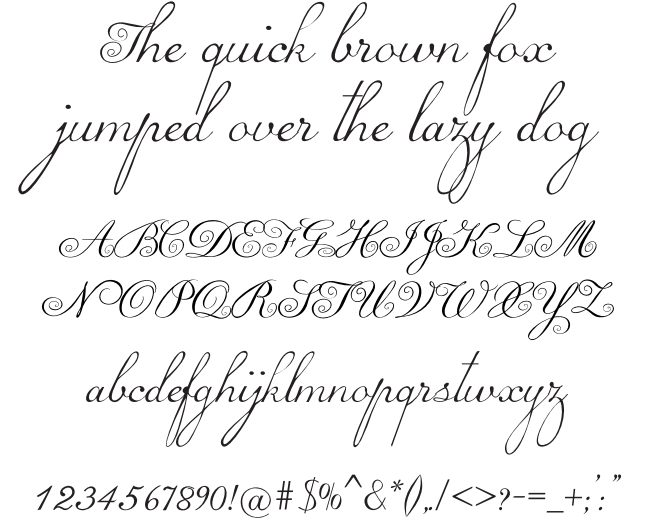 The quick brown fox
jumped over the lazy dog
ABCDEFGHIJKLM
NOPQRSTUVWXYZ
abcdefghijklmnopqrstwxyz
1234567890!@#$%^&*(),./<>?-=_+;':"